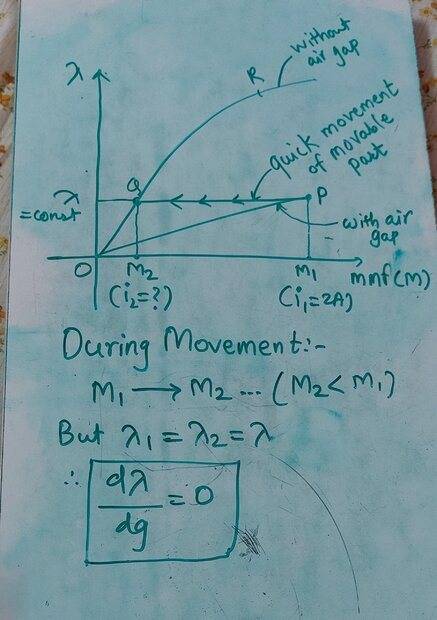 without
air gap
λ
R
quick movement
of movable
part
Q
P
λ
=const
with air
gap
O
M2
M1
mmf(M)
(i2=?)
(i1=2A)
During Movement:-
M1 → M2 ... (M2 < M1)
But λ1 = λ2 = λ
∴ dλ/dg = 0